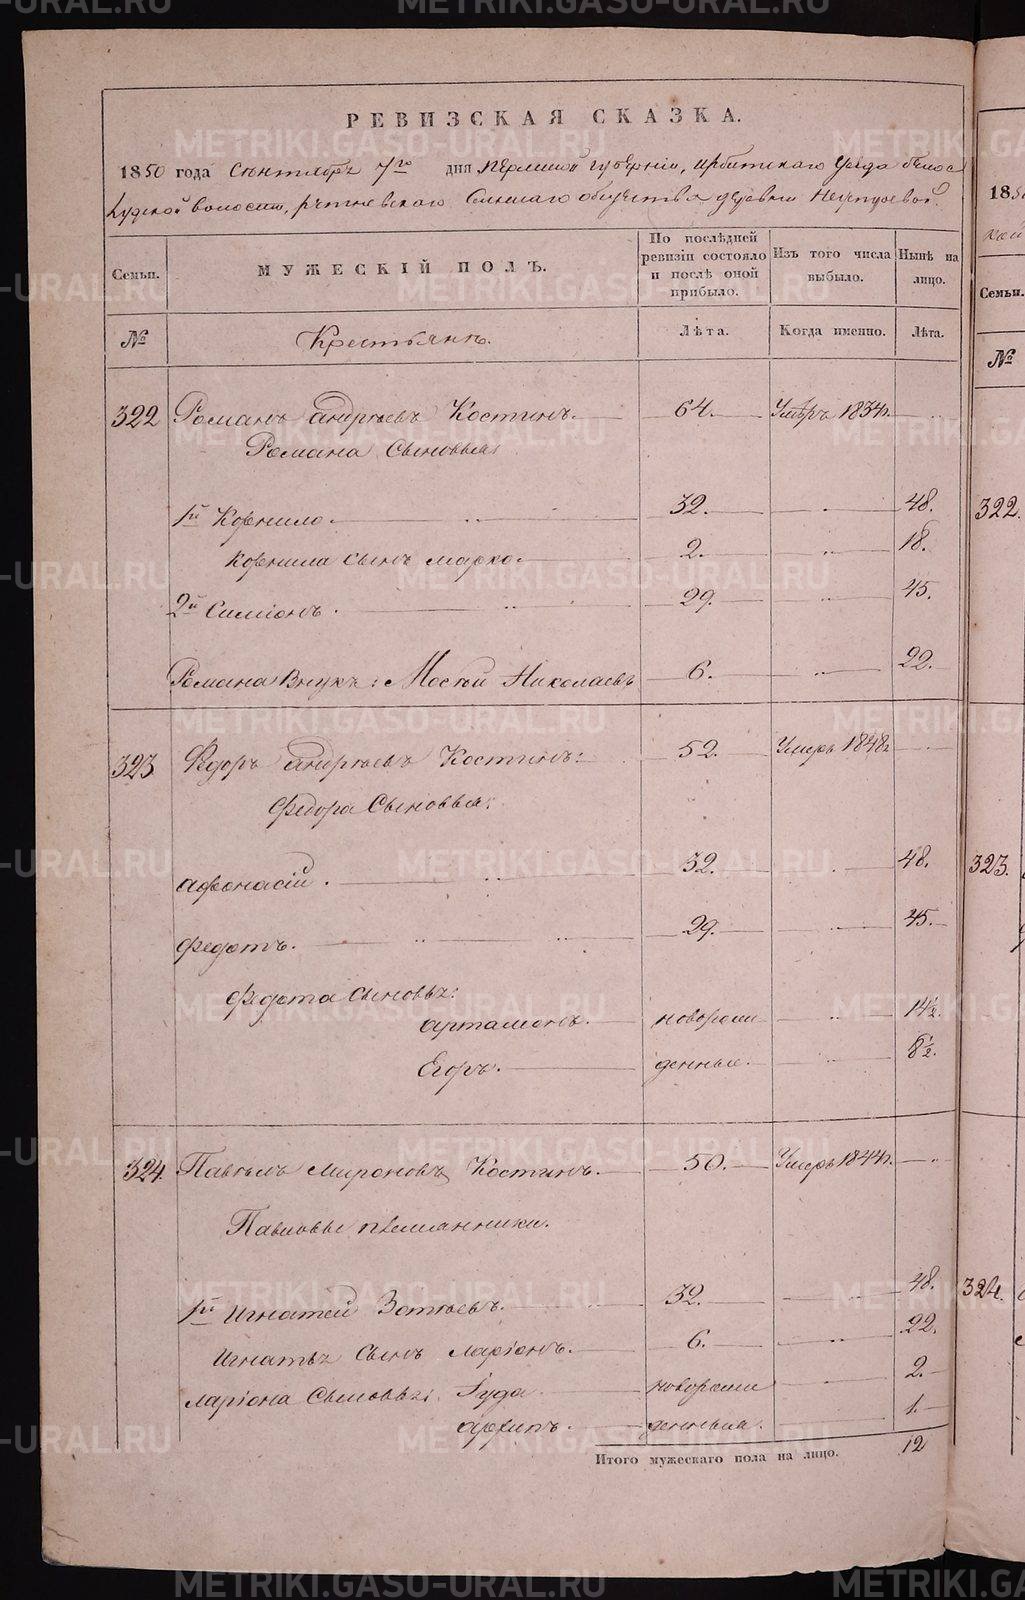 РЕВИЗСКАЯ СКАЗКА.
1850 года Сентября 7го дня Пермской губернии, Ирбитского уезда Бело-
слудской волости, Ретневского Сельского общества деревни
Семьи. МУЖЕСКІЙ ПОЛЪ. По послѣдней ревизіи состояло и послѣ оной прибыло. Изъ того числа выбыло. Нынѣ на лицо.
№ Крестьянъ. Лѣта. Когда именно. Лѣта.
322 Романъ Андреевъ Костинъ. 64. Умеръ 1834г.
Романа Сыновья:
1й Корнило. 32. 48.
Корнила Сынъ Марко. 2. 18.
2й Симіонъ. 29. 45.
Романа Внукъ: Мосей Николаевъ 6. 22.
323 Федоръ Андреевъ Костинъ: 52. Умеръ 1848г
Федора Сыновья:
Афонасій. 32. 48.
Федотъ. 29. 45.
Федота Сыновья:
Артамонъ. новорож- 14½.
Егоръ. денные. 8½.
324. Павелъ Мироновъ Костинъ. 50. Умеръ 1844г.
Павловы племянники.
1й Игнатей Зотеевъ. 32. 48.
Игнатья Сынъ Ларіонъ. 6. 22.
Ларіона Сыновья: Іуда новорож 2.
Архипъ. денныя. 1
Итого мужескаго пола на лицо. 12
185
Семьи.
№
322.
323.
324.
METRIKI.GASO-URAL.RU